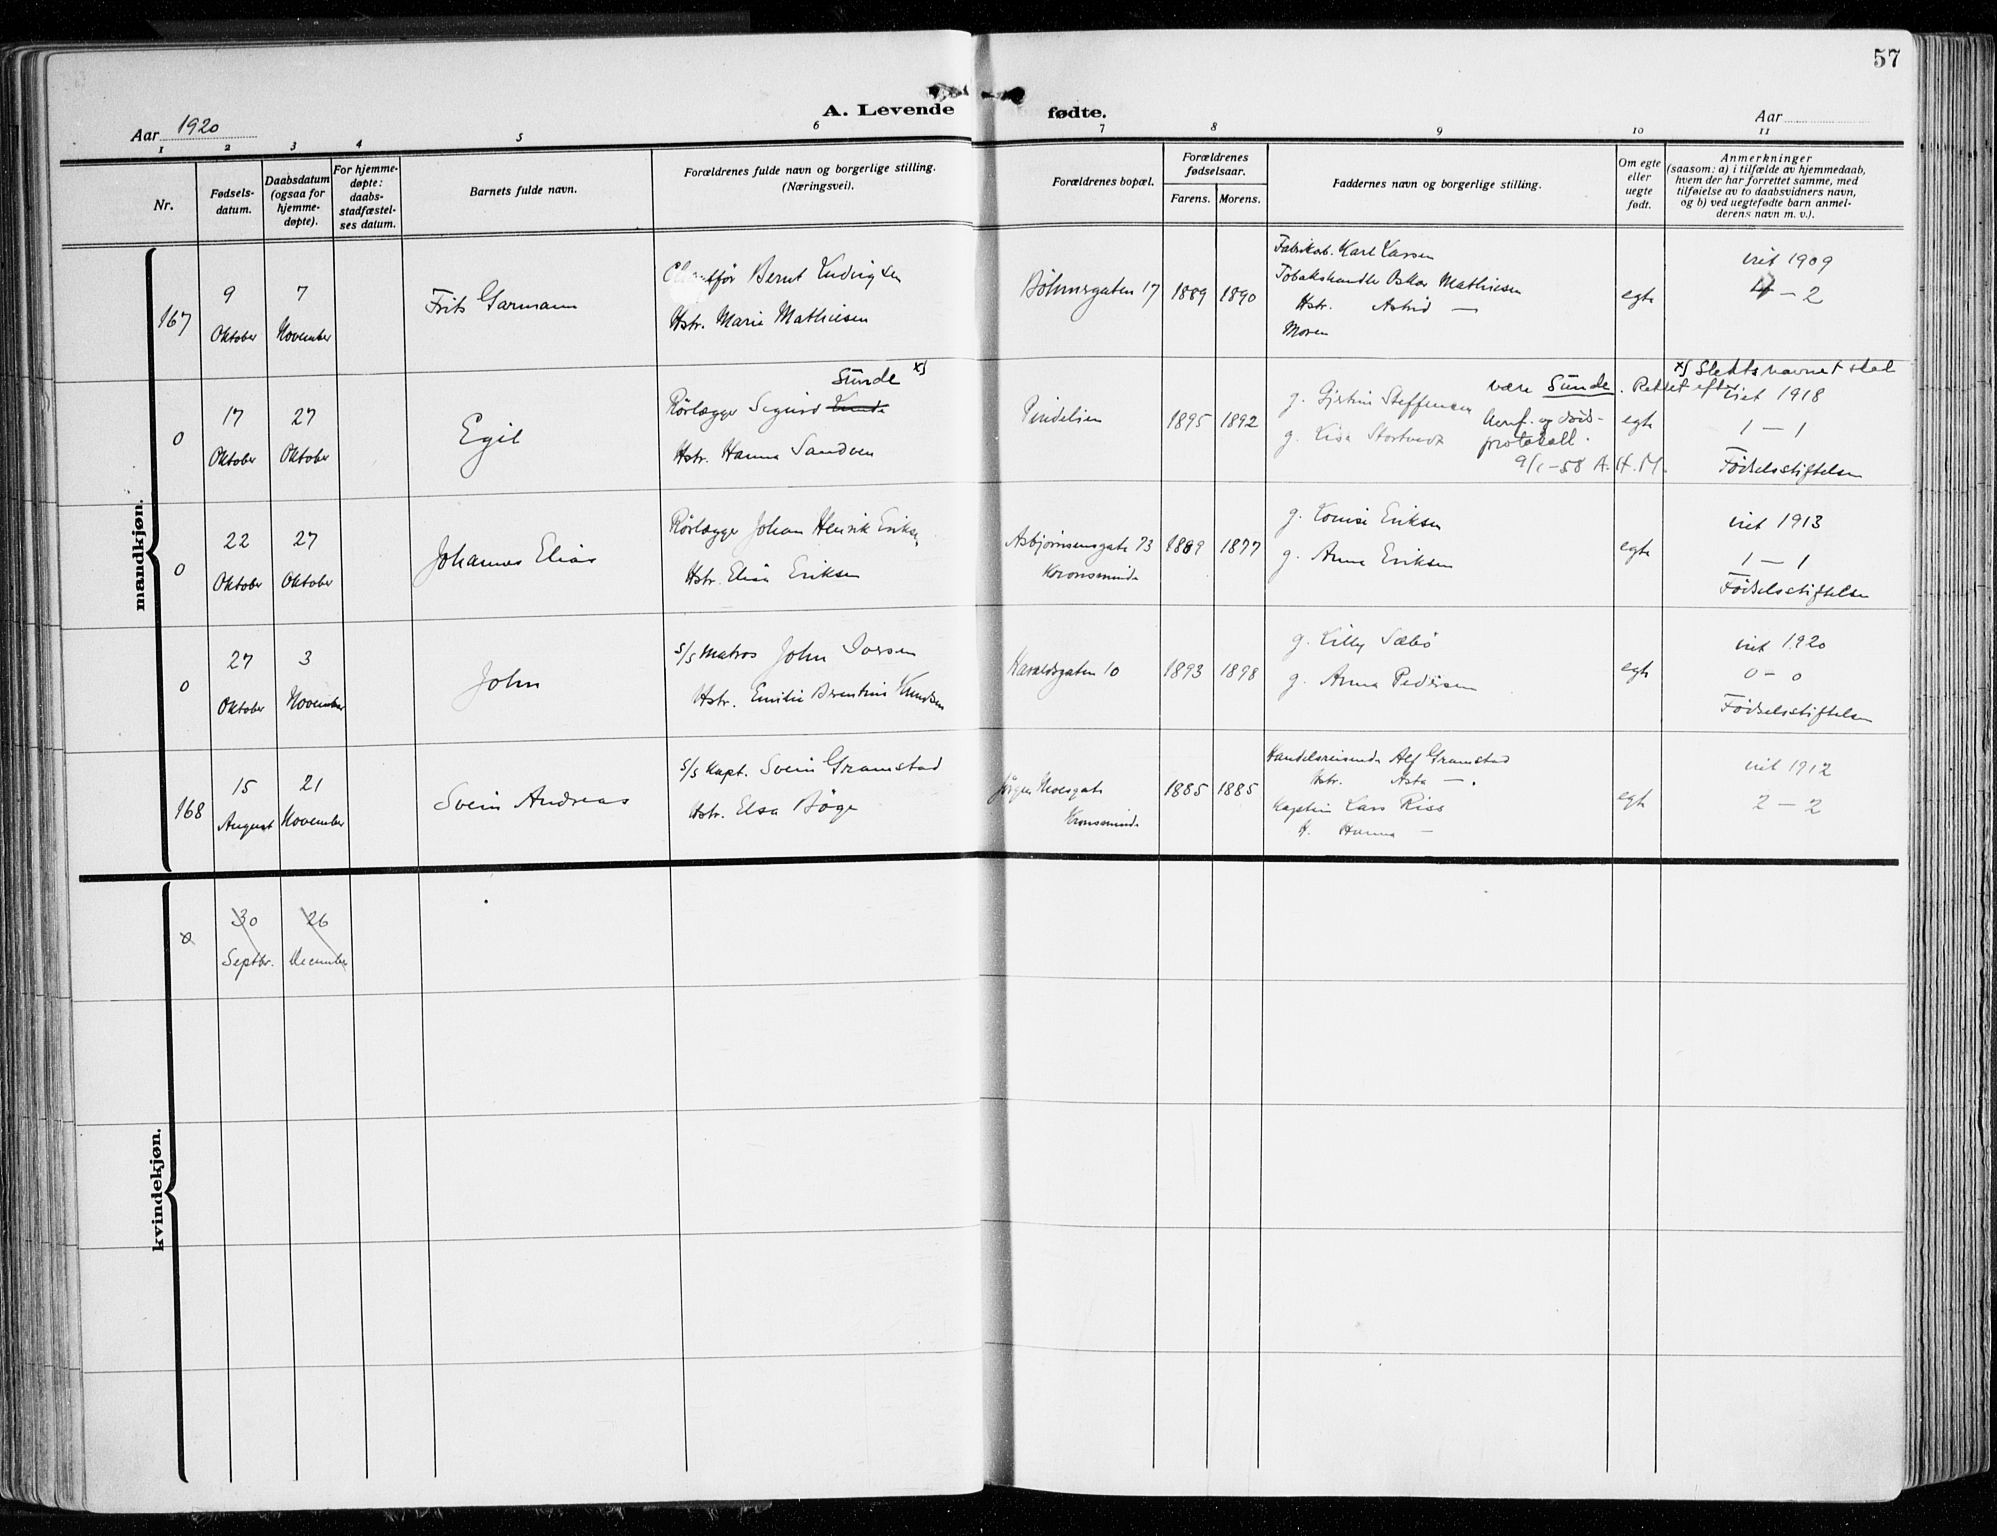 57
A. Levende fødte.
Aar 1920
Aar
1 2 3 4 5 6 7 8 9 10 11
Nr.
Fødsels-
datum.
Daabsdatum
(ogsaa for
hjemme-
døpte).
For hjemme-
døpte:
daabs-
stadfæstel-
ses datum.
Barnets fulde navn.
Forældrenes fulde navn og borgerlige stilling.
(Næringsvei).
Forældrenes bopæl.
Forældrenes
fødselsaar.
Farens. Morens.
Faddernes navn og borgerlige stilling.
Om egte
eller
uegte
født.
Anmerkninger
(saasom: a) i tilfælde av hjemmedaab,
hvem der har forrettet samme, med
tilføielse av to daabsvidners navn,
og b) ved uegtefødte barn anmel-
derens navn m. v.).
mandkjøn.
167
9
Oktober
7
November
Frits Garmann
Bernt Ludvigsen
Hstr. Marie Mathiesen
Bøhmergaten 17
1889 1890
Fabrikab. Karl Larsen
Tobakshandler Oskar Mathiesen
Hstr. Astrid —
Moren
egte
viet 1909
4 – 2
0
17
Oktober
27
Oktober
Egil
Sunde x)
Rørlægger Sigurd
Hstr. Hanna Sandven
Pindelien
1895 1892
g. Gjertine Steffensen
g. Lisa Stortvedt
x) Slektsnavnet skal
være Sunde. Rettet efter
protokoll.
9/1-58 A.H.M.
egte
viet 1918
1 – 1
Fødselsstiftelsen
0
22
Oktober
27
Oktober
Johannes Elias
Rørlægger Johan Henrik Eriksen
Hstr. Elisa Eriksen
Asbjørnsensgate 73
Kronsminde
1889 1877
g. Louise Eriksen
g. Anna Eriksen
egte
viet 1913
1 – 1
Fødselsstiftelsen
0
27
Oktober
3
November
John
s/s Matros John Iversen
Hstr. Emilie Berentine Knudsen
Haraldsgaten 10
1893 1898
g. Lilly Sæbø
g. Anna Pedersen
egte
viet 1920
0 – 0
Fødselsstiftelsen
168
15
August
21
November
Svein Andreas
s/s Kapt. Svein Gramstad
Hstr. Elsa Bøge
Jørgen Moesgate
Kronsminde
1885 1885
Handelsreisende Alf Gramstad
Hstr. Asta — .
Kaptein Lars Riss
H. Hanna —
egte
viet 1912
2 – 2
kvindekjøn.
0
30
Septbr.
26
December